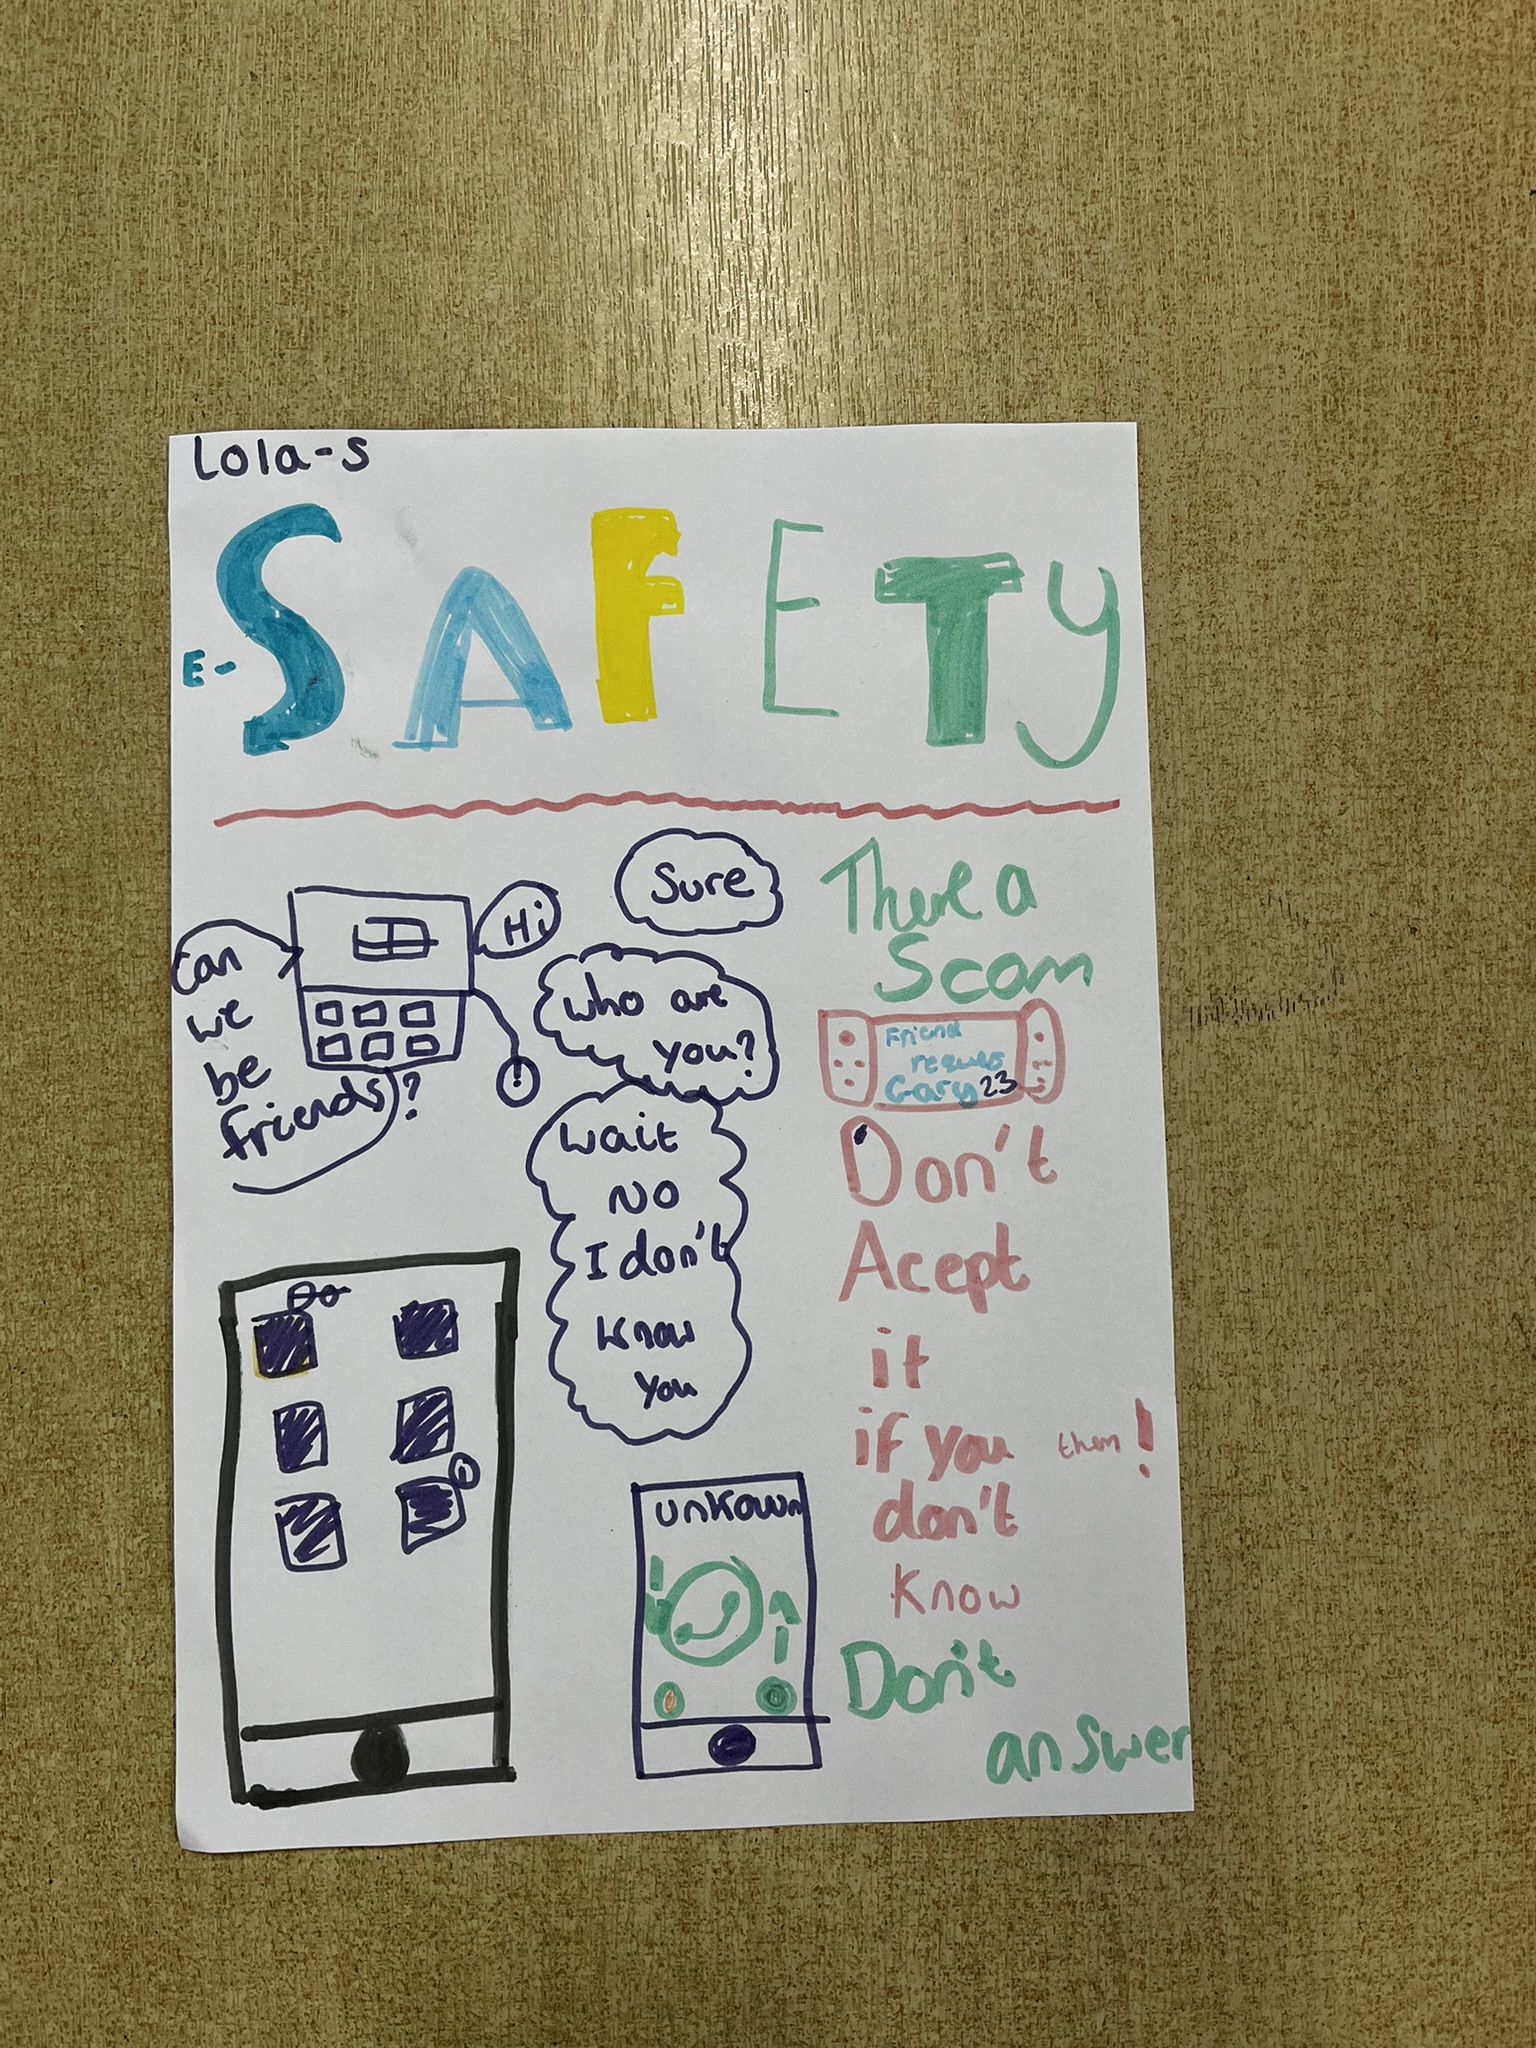 Lola-s
E-SAFETY
Can
we
be
friends?
Hi
!
Sure
Who are
you?
Wait
NO
I don't
know
you
There a
Scam
Friend
reques
Gary23
Don't
Acept
it
if you them!
don't
Know
unkown
Don't
answer